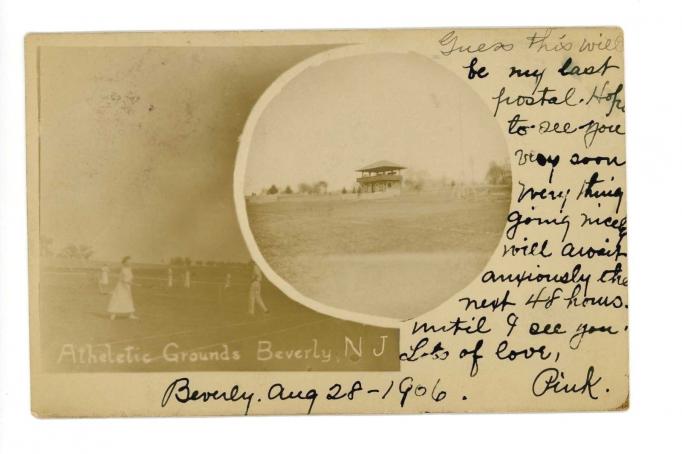 Guess this will
be my last
postal. Hope
to see you
very soon
Every thing
going nicely
will await
anxiously the
next 48 hours.
until I see you.
Lots of love,
Pink.
Atheletic Grounds Beverly, N J
Beverly. Aug 28-1906.